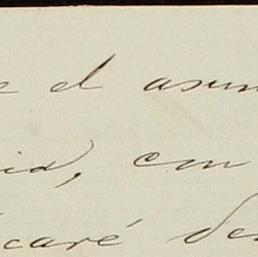 e el asun
id, con
icaré de